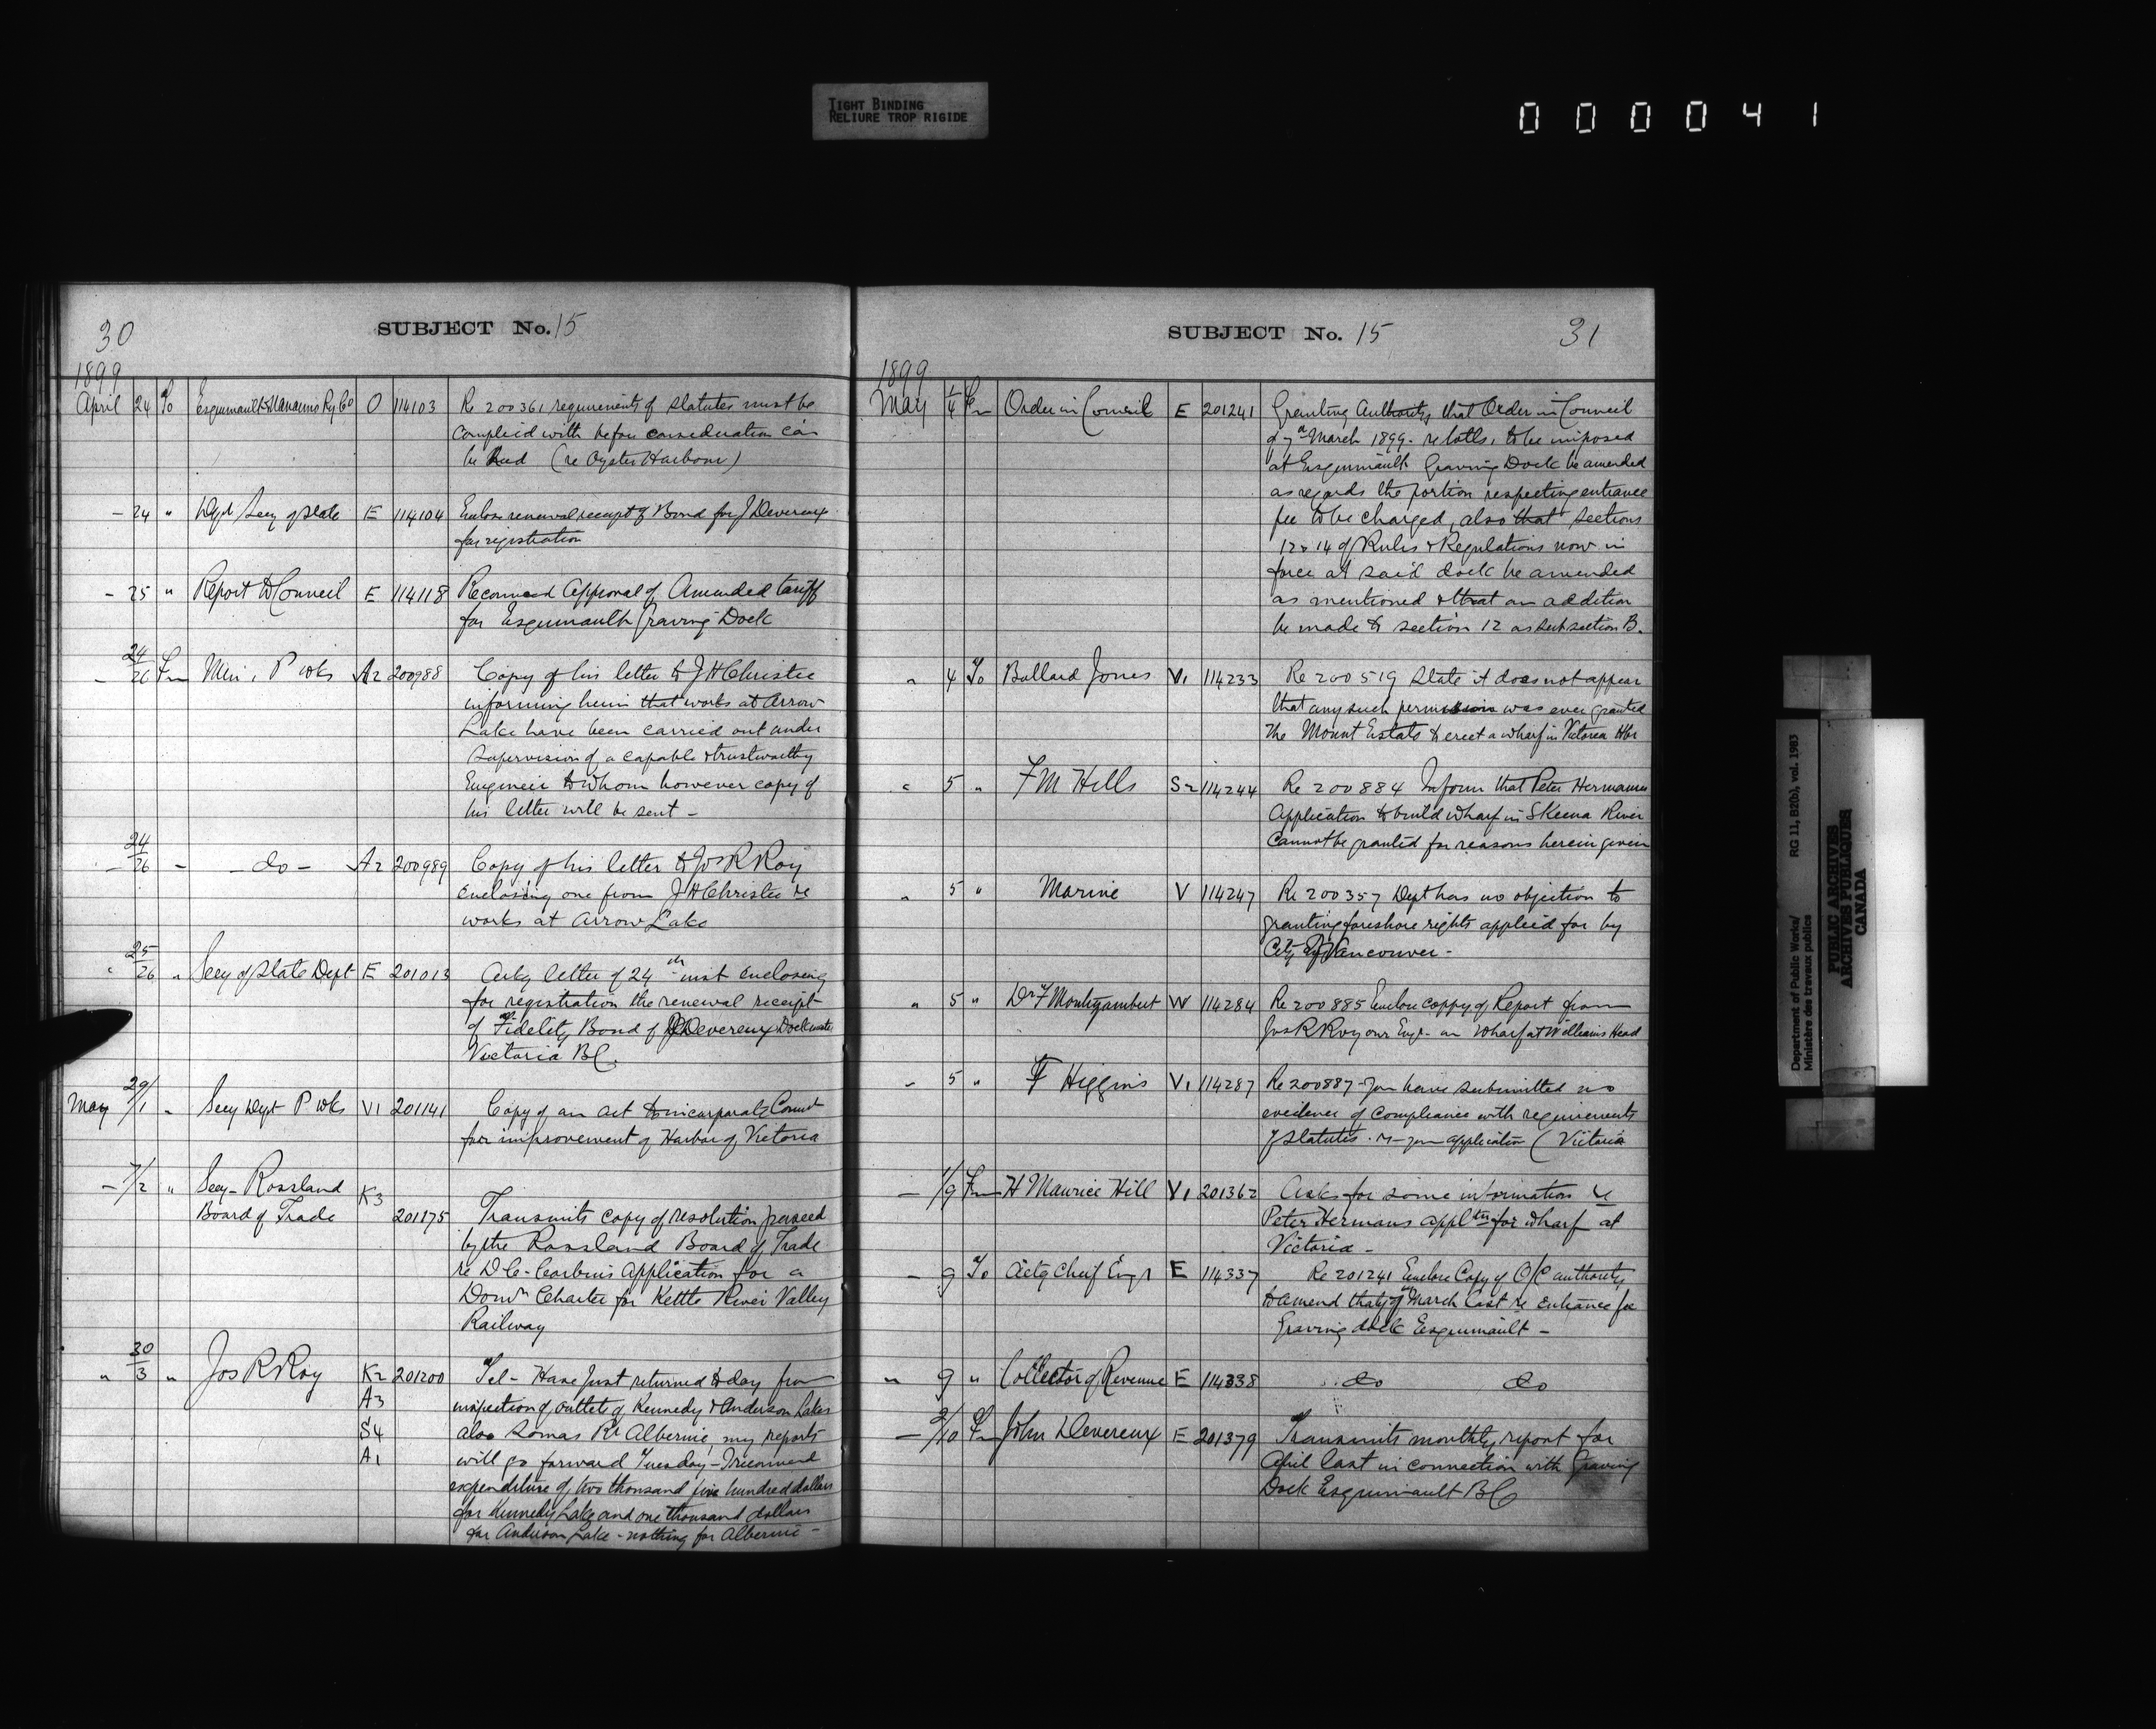 TIGHT BINDING
RELIURE TROP RIGIDE
000041
30
SUBJECT No. 15
1899
April 24 To Esquimault & Nanaimo Ry Co O 114103 Re 200361 requirements of statutes must be
complied with before consideration can
be had (re Oyster Harbour)
- 24 " Dept Secy of State E 114104 Enclose renewal receipt of Bond for J Devereux
for registration
- 25 " Report to Council E 114118 Recommend Approval of Amended tariff
for Esquimault Graving Dock
- 24/26 Fm Min. P Wks A2 200988 Copy of his letter to J H Christie
informing him that works at Arrow
Lake have been carried out under
supervision of a capable & trustworthy
Engineer to whom however copy of
his letter will be sent -
- 24/26 - - do - A2 200989 Copy of his letter to Jos R Roy
enclosing one from J H Christie re
works at Arrow Lake
" 25/26 " Secy of State Dept E 201013 Ackg letter of 24th inst enclosing
for registration the renewal receipt
of Fidelity Bond of J Devereux Dockmaster
Victoria BC.
May 29/1 " Secy Dept P Wks V1 201141 Copy of an act to incorporate Commt
for improvement of Harbor of Victoria
- 7/2 " Secy - Rossland
Board of Trade K3 201175 Transmits copy of resolution passed
by the Rossland Board of Trade
re D C - Corbins Application for a
Domn Charter for Kettle River Valley
Railway
" 30/3 " Jos R Roy K2 201200 Tel - Have just returned to day from
A3 inspection of outlets of Kennedy & Anderson Lakes
S4 also Somas Rr Albernie, my reports
A1 will go forward Tuesday - I recommend
expenditure of two thousand five hundred dollars
for Kennedy Lake and one thousand dollars
for Anderson Lake - nothing for Albernie -
SUBJECT No. 15
31
1899
May 1/4 Fm Order in Council E 201241 Granting Authority that Order in Council
of 7th March 1899 - re tolls, to be imposed
at Esquimault Graving Dock be amended
as regards the portion respecting entrance
fee to be charged, also that sections
12 & 14 of Rules & Regulations now in
force at said dock be amended
as mentioned & that an addition
be made to section 12 as subsection B.
" 4 To Bullard Jones V1 114233 Re 200519 State it does not appear
that any such permission was ever granted
the Mount Estate to erect a wharf in Victoria Hbr
" 5 " F M Hills S2 114244 Re 200884 Inform that Peter Hermanns
Application to build wharf in Skeena River
cannot be granted for reasons herein given
" 5 " Marine V 114247 Re 200357 Dept has no objection to
granting foreshore rights applied for by
City of Vancouver -
" 5 " Dr F Montizambert W 114284 Re 200885 Enclose coppy of Report from
Jos R Roy our Engr - on wharf at Williams Head
" 5 " F Higgins V1 114287 Re 200887 - you have submitted no
evidence of compliance with requirements
of statutes. re - your application (Victoria
- 1/9 Fm H Maurice Hill V1 201362 Asks for some information re
Peter Hermans applctn for wharf at
Victoria -
- 9 To Actg Cheif Engr E 114337 Re 201241 Enclose Copy of O/C authority
to amend that of 7th March last re entrance fee
Graving dock Esquimault -
" 9 " Collector of Revenue E 114338 do do
- 2/10 Fm John Devereux E 201379 Transmits monthly report for
April last in connection with Graving
Dock Esquimault BC
Department of Public Works/
Ministère des travaux publics
RG 11, B2(b), vol. 1983
PUBLIC ARCHIVES
ARCHIVES PUBLIQUES
CANADA